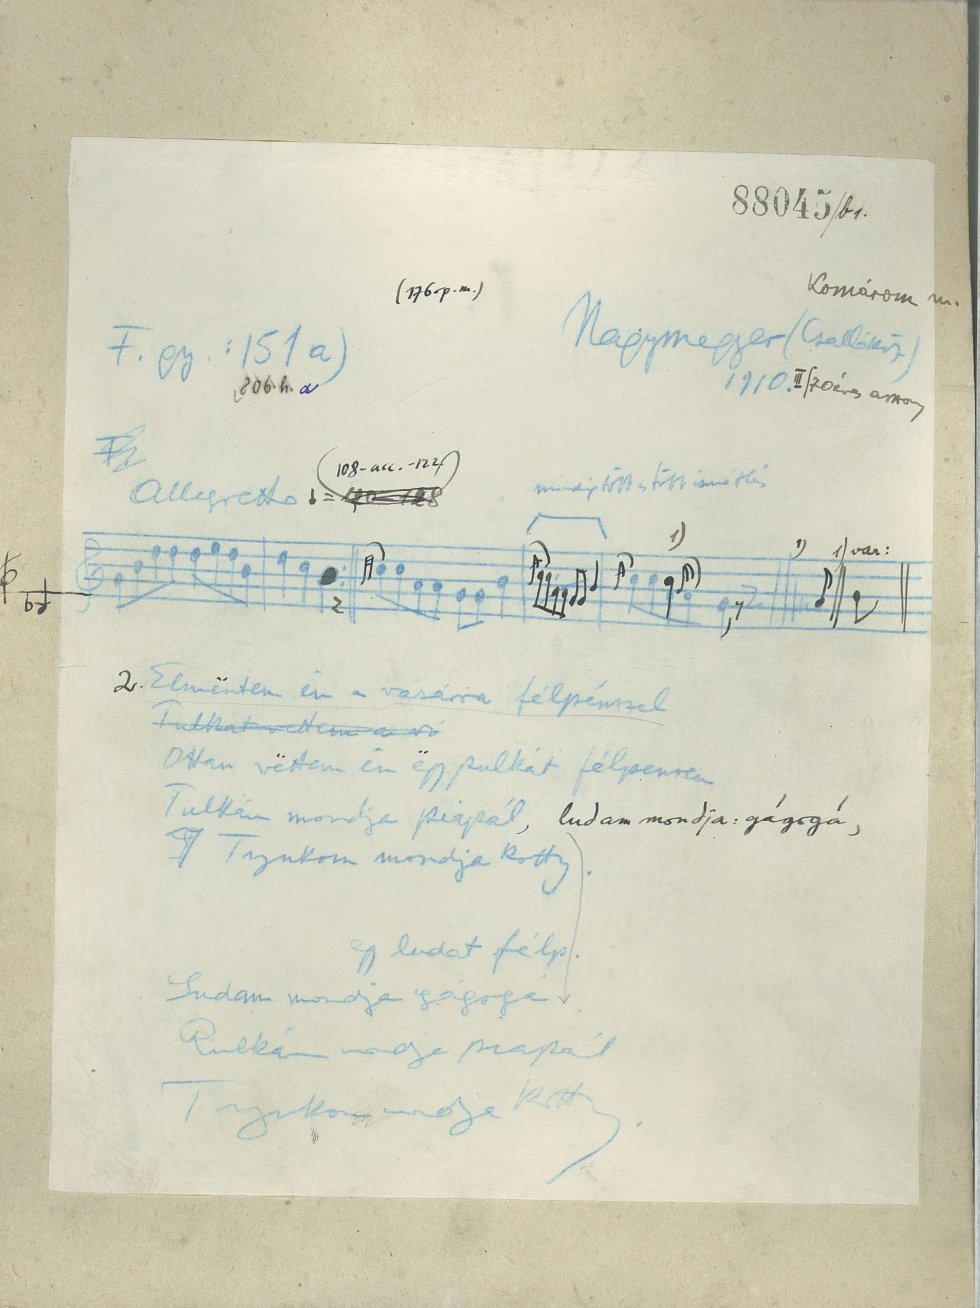 88045/b1.
(176-p.m.)
Komárom m.
F. gy.: 151 a)
Nagymegyer (Csallóköz)
206.h. a
1910. II (70 éves asszony
108-acc.-122
Allegretto ♩ = 120-128
mindig több s több ismétlés
1)
1)
1) var:
2
2. Elmëntem én a vásárra félpénzzel
Tulkát vettem a vó
Ottan vëttem én ëgy pulkát félpenzen
Tulkám mondja piapál, ludam mondja: gágogá,
Tyukom mondja kotty.
egy ludat félp.
Ludam mondja gágogá
Pulkám mondja piapál
Tyukom mondja kotty.